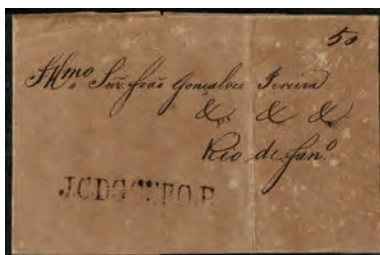 50
Illmo Snr. João Gonçalves Pereira
& & &
Rio de Janº